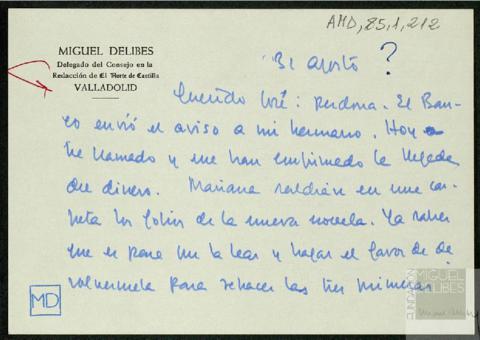 AMD, 85, 1, 212
MIGUEL DELIBES
Delegado del Consejo en la
Redacción de El Norte de Castilla
VALLADOLID
31 agosto ?
Querido José: perdona. El Ban-
co envió el aviso a mi hermano. Hoy
he llamado y me han confirmado la llegada
de dinero. Mañana saldrán en una car-
peta los folios de la nueva novela. Ya sabes
que es para que la leas y hagas el favor de de
volvérmela para rehacer las tres primeras
MD
FUNDACIÓN
MIGUEL
DELIBES